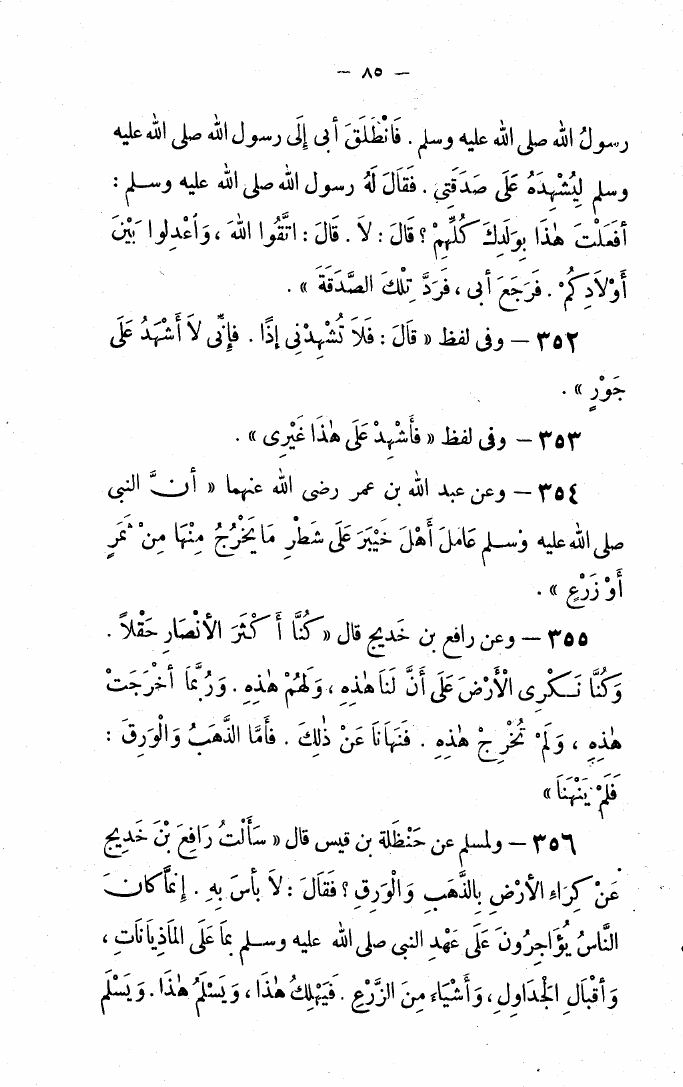 — ٨٥ —
رسولُ الله صلى الله عليه وسلم . فَانْطَلَقَ أبى إلَى رسول الله صلى الله عليه
وسلم لِيُشْهِدَهُ عَلَى صَدَقَتِي . فَقَالَ لَهُ رسول الله صلى الله عليه وسلم :
أفَعَلْتَ هٰذَا بِوَلَدِكَ كُلِّهِمْ ؟ قَالَ : لاَ . قَالَ : اتَّقُوا اللهَ ، وَاعْدِلوا بَيْنَ
أوْلاَدِكُمْ . فَرَجَعَ أبى ، فَرَدَّ تِلْكَ الصَّدَقَةَ » .
٣٥٢ — وفى لفظ « قَالَ : فَلاَ تُشْهِدْنِى إذًا . فإنِّى لاَ أَشْهَدُ عَلَى
جَوْرٍ » .
٣٥٣ — وفى لفظ « فأَشْهِدْ عَلَى هٰذَا غَيْرِى » .
٣٥٤ — وعن عبد الله بن عمر رضى الله عنهما « أنَّ النبى
صلى الله عليه وسلم عَامَلَ أَهْلَ خَيْبَرَ عَلَى شَطْرِ مَا يَخْرُجُ مِنْهَا مِنْ ثَمَرٍ
أوْ زَرْعٍ » .
٣٥٥ — وعن رافع بن خَديج قال « كُنَّا أَكْثَرَ الأنْصَارِ حَقْلاً .
وَكُنَّا نَكْرِى الْأَرْضَ عَلَى أَنَّ لَنَا هٰذِهِ ، وَلَهُمْ هٰذِهِ . وَرُبَّمَا أخْرَجَتْ
هٰذِهِ ، وَلَمْ تُخْرِجْ هٰذِهِ . فَنَهَانَا عَنْ ذٰلِكَ . فأَمَّا الذَّهَبُ وَالْوَرِقَ :
فَلَمْ يَنْهَنَا »
٣٥٦ — ولمسلم عن حَنْظَلة بن قيس قال « سَأَلْتُ رَافِعَ بْنَ خَدِيجٍ
عَنْ كِرَاءِ الأرْضِ بِالذَّهَبِ وَالْوَرِقِ ؟ فَقَالَ : لاَ بأسَ بِهِ . إنمَّا كانَ
النَّاسُ يُؤَاجِرُونَ عَلَى عَهْدِ النبى صلى الله عليه وسلم بمَا عَلَى المَاذِيَانَاتِ ،
وَأقْبَالِ الجْدَاوِلِ ، وَأشْيَاءَ مِنَ الزَّرْعِ . فَيَهْلِكُ هٰذَا ، وَيَسْلَمُ هٰذَا . وَيَسْلَم